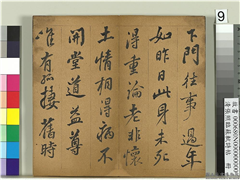 9
下門往事過年
如昨日此身未死
得重論老非懷
土情相得病不
開堂道益尊
唯有孤棲舊時